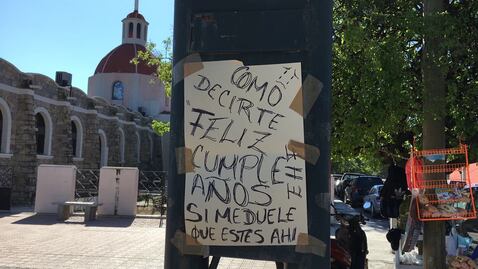 COMO
DECIRTE
FELIZ
CUMPLE
AÑOS
SI ME DUELE
QUE ESTES AHI